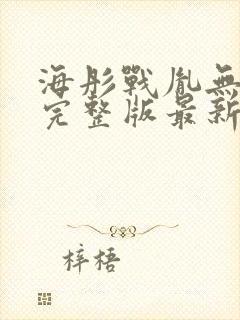 海彤戰胤無
完整版最新
梓梧